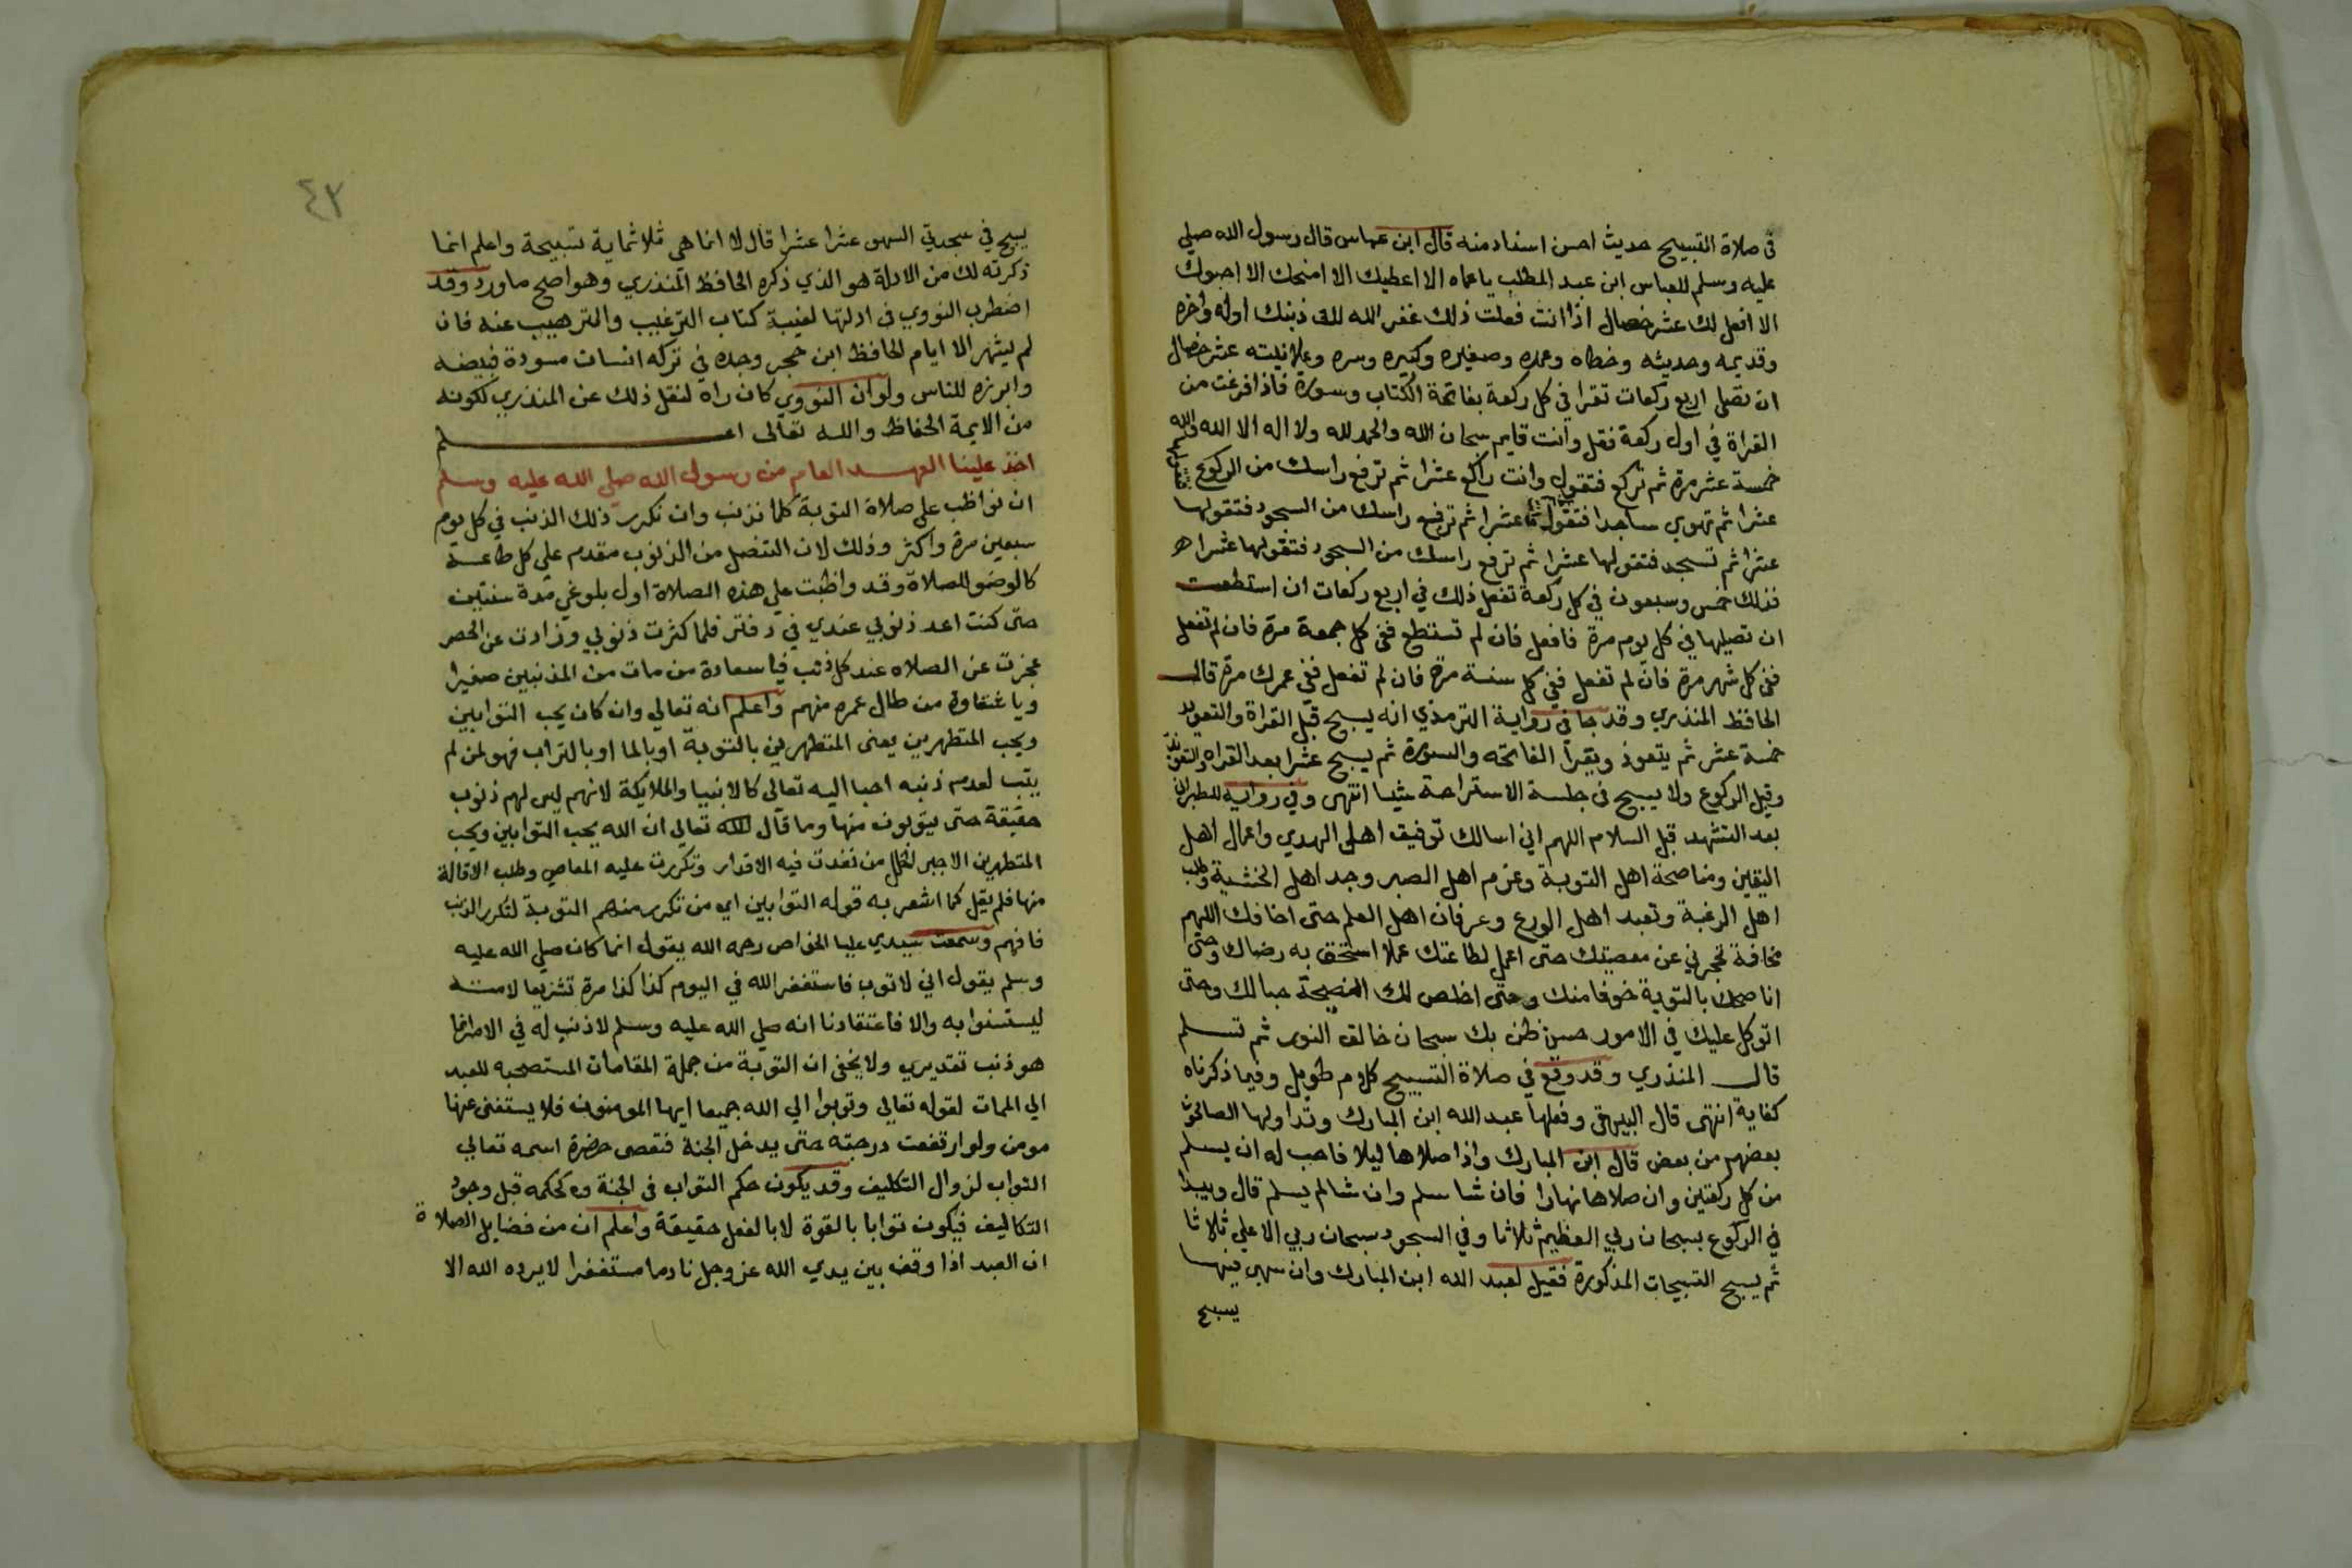 في صلاة التسبيح حديث احسن اسناد منه قال ابن عباس قال رسول الله صلي
عليه وسلم للعباس ابن عبد المطلب ياعماه الا اعطيك الا امنحك الا احبوك
الا افعل لك عشر خصال اذا انت فعلت ذلك غفر الله لك ذنبك اوله واخره
وقديمه وحديثه وخطاه وعمده وصغيره وكبيره وسره وعلانيته عشر خصال
ان تصلي اربع ركعات تقرا في كل ركعة بفاتحة الكتاب وسورة فاذا فرغت من
القراة في اول ركعة فقل وانت قايم سبحان الله والحمد لله ولا اله الا الله والله
خمسة عشر مرة ثم تركع فتقول وانت راكع عشرا ثم ترفع راسك من الركوع فتقولها
عشرا ثم تهوي ساجدا فتقولها عشرا ثم ترفع راسك من السجود فتقولها
عشرا ثم تسجد فتقولها عشرا ثم ترفع راسك من السجود فتقولها عشرا
فذلك خمس وسبعون في كل ركعة تفعل ذلك في اربع ركعات ان استطعت
ان تصليها في كل يوم مرة فافعل فان لم تستطع ففي كل جمعة مرة فان لم تفعل
ففي كل شهر مرة فان لم تفعل ففي كل سنة مرة فان لم تفعل ففي عمرك مرة قال
الحافظ المنذري وقد جا في رواية الترمذي انه يسبح قبل القراة والتعويذ
خمسة عشر ثم يتعوذ ويقرأ الفاتحه والسورة ثم يسبح عشرا بعد القراه والتعوذ
وقبل الركوع ولا يسبح في جلسة الاستراحة شيا انتهى وفي رواية للطبراني
بعد التشهد قبل السلام اللهم اني اسالك توفيق اهل الهدي واعمال اهل
اليقين ومناصحة اهل التوبة وعزم اهل الصبر وجد اهل الخشية وطلب
اهل الرغبة وتعبد اهل الورع وعرفان اهل العلم حتى اخافك اللهم
مخافة تحجزني عن معصيتك حتى اعمل لطاعتك عملا استحق به رضاك وحتى
اناصحك بالتوبة خوفا منك وحتى اخلص لك النصيحة حبا لك وحتى
اتوكل عليك في الامور حسن ظن بك سبحان خالق النور ثم تسلم
قال المنذري وقد وقع في صلاة التسبيح كلام طويل وفيما ذكرناه
كفاية انتهى قال البيهقي وفعلها عبد الله ابن المبارك وتداولها الصالحون
بعضهم من بعض قال ابن المبارك واذا صلاها ليلا فاحب له ان يسلم
من كل ركعتين وان صلاها نهارا فان شا سلم وان شا لم يسلم قال ويبدا
في الركوع بسبحان ربي العظيم ثلاثا وفي السجود سبحان ربي الاعلي ثلاثا
ثم يسبح التسبيحات المذكورة فقيل لعبد الله ابن المبارك وان سهي فيها
يسبح
٤٣
يسبح في سجدتي السهو عشرا عشرا قال لا انما هي ثلاثماية تسبيحة واعلم انما
ذكرته لك من الادلة هو الذي ذكره الحافظ المنذري وهو اصح ماورد وقد
اضطرب النووي في ادلتها لغيبة كتاب الترغيب والترهيب عنه فان
لم يشهر الا ايام الحافظ ابن حجر وجده في تركه انسان مسودة فبيضه
وابرزه للناس ولو ان النووي كان راه لنقل ذلك عن المنذري لكونه
من الايمة الحفاظ والله تعالى اعلم
اخذ علينا العهد العام من رسول الله صلي الله عليه وسلم
ان نواظب على صلاة التوبة كلما نذنب وان تكرر ذلك الذنب في كل يوم
سبعين مرة واكثر وذلك لان التنصل من الذنوب مقدم علي كل طاعة
كالوضو للصلاة وقد واظبت علي هذه الصلاة اول بلوغي مدة سنتين
حتى كنت اعد ذنوبي عندي في دفتر فلما كثرت ذنوبي وزادت عن الحصر
عجزت عن الصلاه عند كل ذنب فيا سعادة من مات من المذنبين صغيرا
ويا شقاوة من طال عمره منهم واعلم انه تعالي وان كان يحب التوابين
ويحب المتطهرين يعني المتطهرين بالتوبة او بالما او بالتراب فهو لمن لم
يتب لعدم ذنبه احبا اليه تعالى كالانبيا والملايكة لانهم ليس لهم ذنوب
حقيقة حتى يتوبون منها وما قال الله تعالي ان الله يحب التوابين ويحب
المتطهرين الا جبر لخلل من نفذت فيه الاقدار وتكررت عليه المعاصي وطلب الاقالة
منها فلم يقل كما اشعر به قوله التوابين اي من تكرر منهم التوبة لتكرر الذنب
فافهم وسمعت سيدي عليا الخواص رحمه الله يقول انما كان صلي الله عليه
وسلم يقول اني لاتوب فاستغفر الله في اليوم كذا كذا مرة تشريعا لامته
ليستنوا به والا فاعتقادنا انه صلي الله عليه وسلم لا ذنب له في الامر انما
هو ذنب تقديري ولا يخفى ان التوبة من جملة المقامات المستصحبه للعبد
الي الممات لقوله تعالي وتوبوا الي الله جميعا ايها المومنون فلا يستغنى عنها
مومن ولو ارتفعت درجته حتى يدخل الجنة فتقصى حضرة اسمه تعالي
التواب لزوال التكليف وقد يكون حكم التواب في الجنة كحكمه قبل وجود
التكاليف فيكون توابا بالقوة لا بالفعل حقيقة واعلم ان من فضايل الصلاة
ان العبد اذا وقف بين يدي الله عز وجل نادما مستغفرا لا يرده الله الا